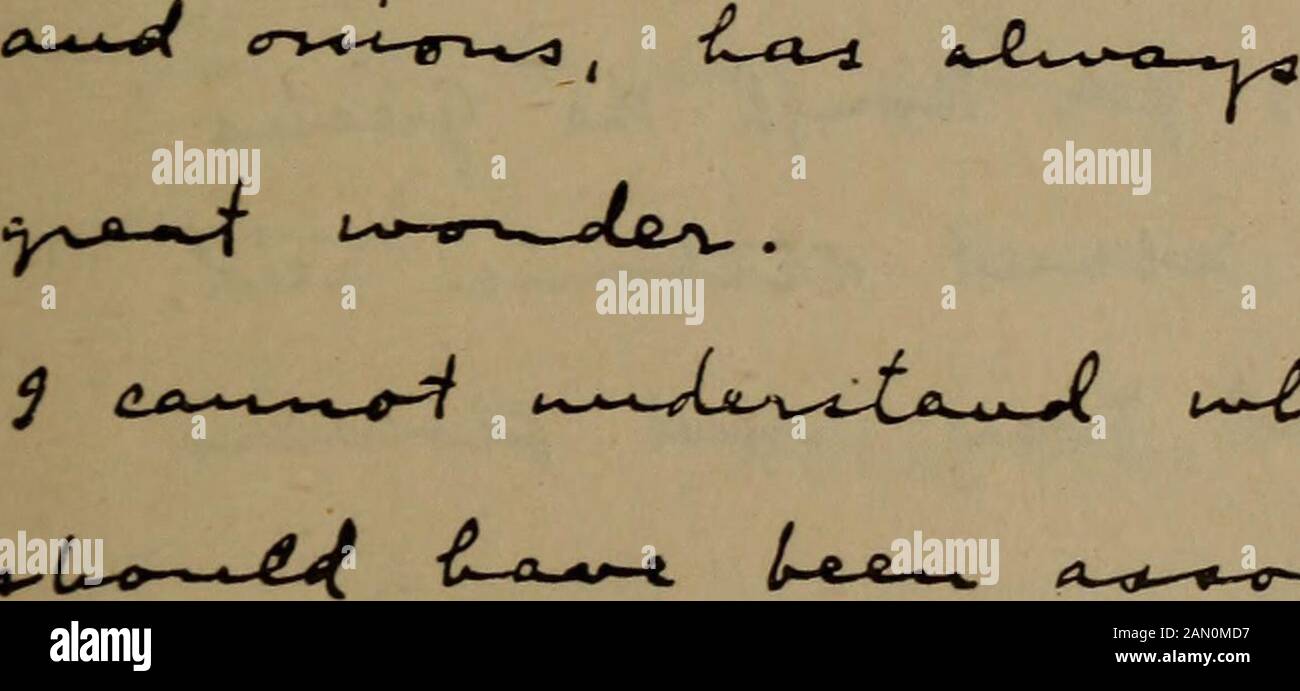 and onions, has always
great wonder.
I cannot understand
should have been
alamy
alamy
alamy
alamy
alamy
alamy
Image ID: 2AN0MD7
www.alamy.com